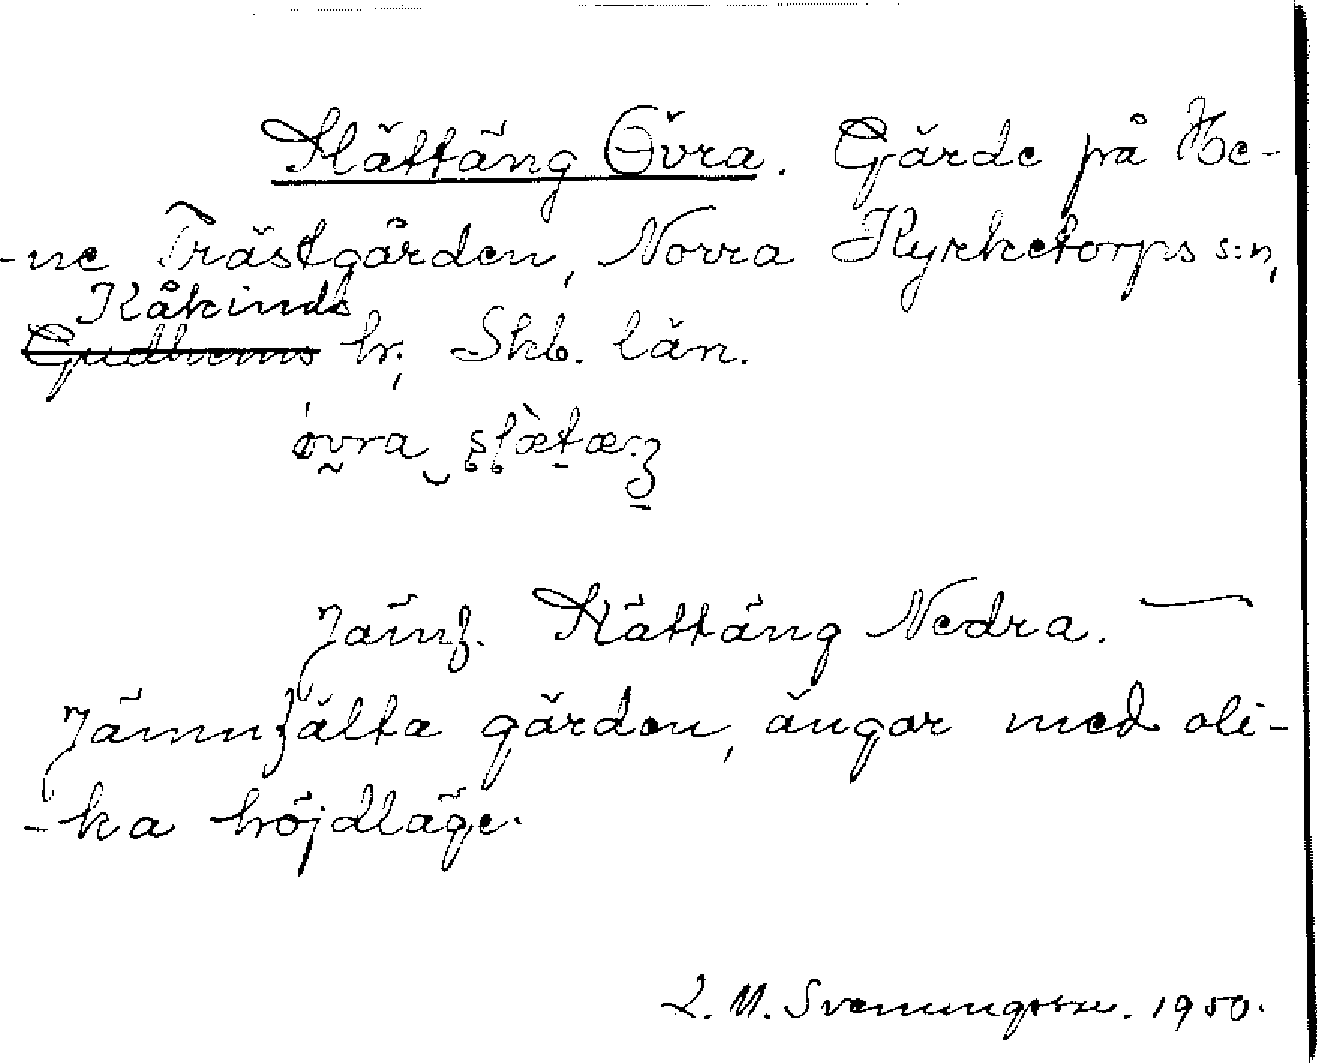 Slättäng Övra. Gärde på He-
-ne Prästgården, Norra Kyrketorps s:n,
Kåkinds
Gudhems hr; Skb. län.
Jämf. Slättäng Nedra. —
Jämnfälta gärden, ängar med oli-
-ka höjdläge.
L. M. Svenungsson. 1950.